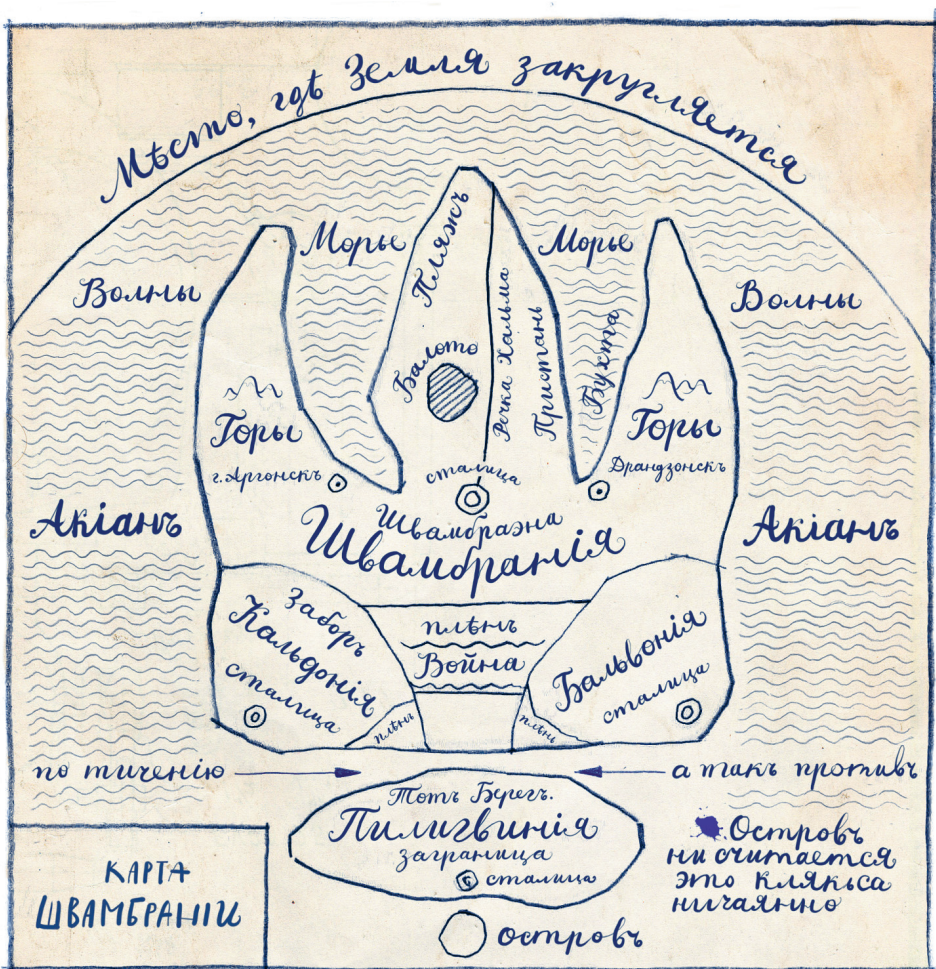 Мѣсто, гдѣ Земля закругляется
Морье
Морье
Волны
Волны
Пляжъ
Балото
Речка Хальма
Пристань
Бухта
Горы
Горы
г. Аргонскъ
Драндзонскъ
сталица
Швамбраэна
Швамбранія
Акіанъ
Акіанъ
Заборъ
Кальдонія
сталица
плѣнъ
Война
Бальвонія
сталица
плѣнъ
плѣнъ
по тиченію
а такъ противъ
Тотъ Берегъ.
Пилигвинія
заграница
сталица
островъ
Островъ
ни считается
это клякьса
ничаянно
КАРТА
ШВАМБРАНІИ